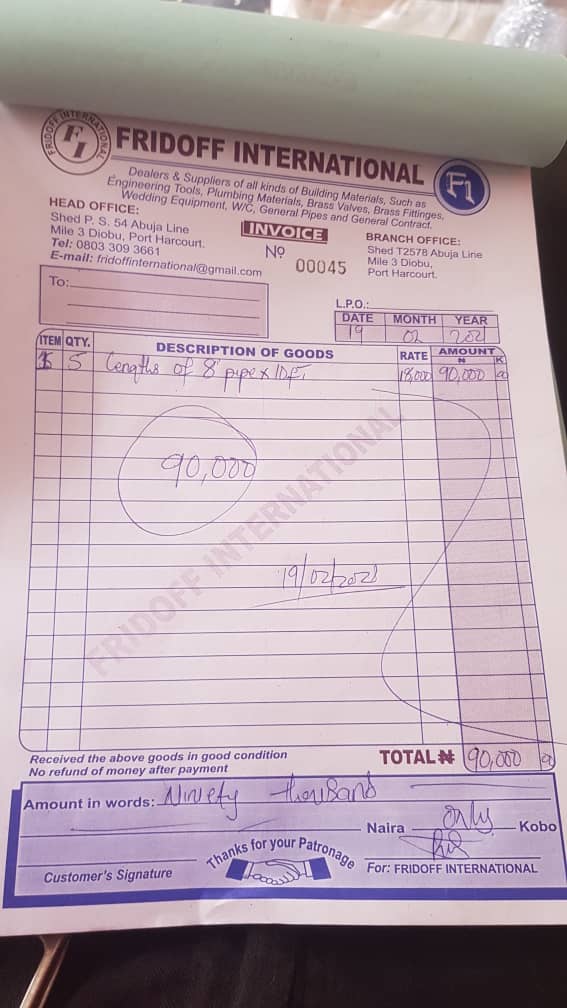 FRIDOFF INTERNATIONAL
FI
FRIDOFF INTERNATIONAL
FI
Dealers & Suppliers of all kinds of Building Materials, Such as
Engineering Tools, Plumbing Materials, Brass Valves, Brass Fittinges,
Wedding Equipment, W/C, General Pipes and General Contract.
HEAD OFFICE:
Shed P. S. 54 Abuja Line
Mile 3 Diobu, Port Harcourt.
Tel: 0803 309 3661
E-mail: fridoffinternational@gmail.com
INVOICE
Nº 00045
BRANCH OFFICE:
Shed T2578 Abuja Line
Mile 3 Diobu,
Port Harcourt.
To:
L.P.O.:
DATE MONTH YEAR
19 02
ITEM QTY. DESCRIPTION OF GOODS RATE AMOUNT
₦ K
5 Lengths of 8" pipe x 18000 90,000
90,000
FRIDOFF INTERNATIONAL
19/02/202
Received the above goods in good condition
No refund of money after payment
TOTAL ₦ 90,000
Amount in words: Ninety thousand
Naira only Kobo
Thanks for your Patronage
Customer's Signature
For: FRIDOFF INTERNATIONAL